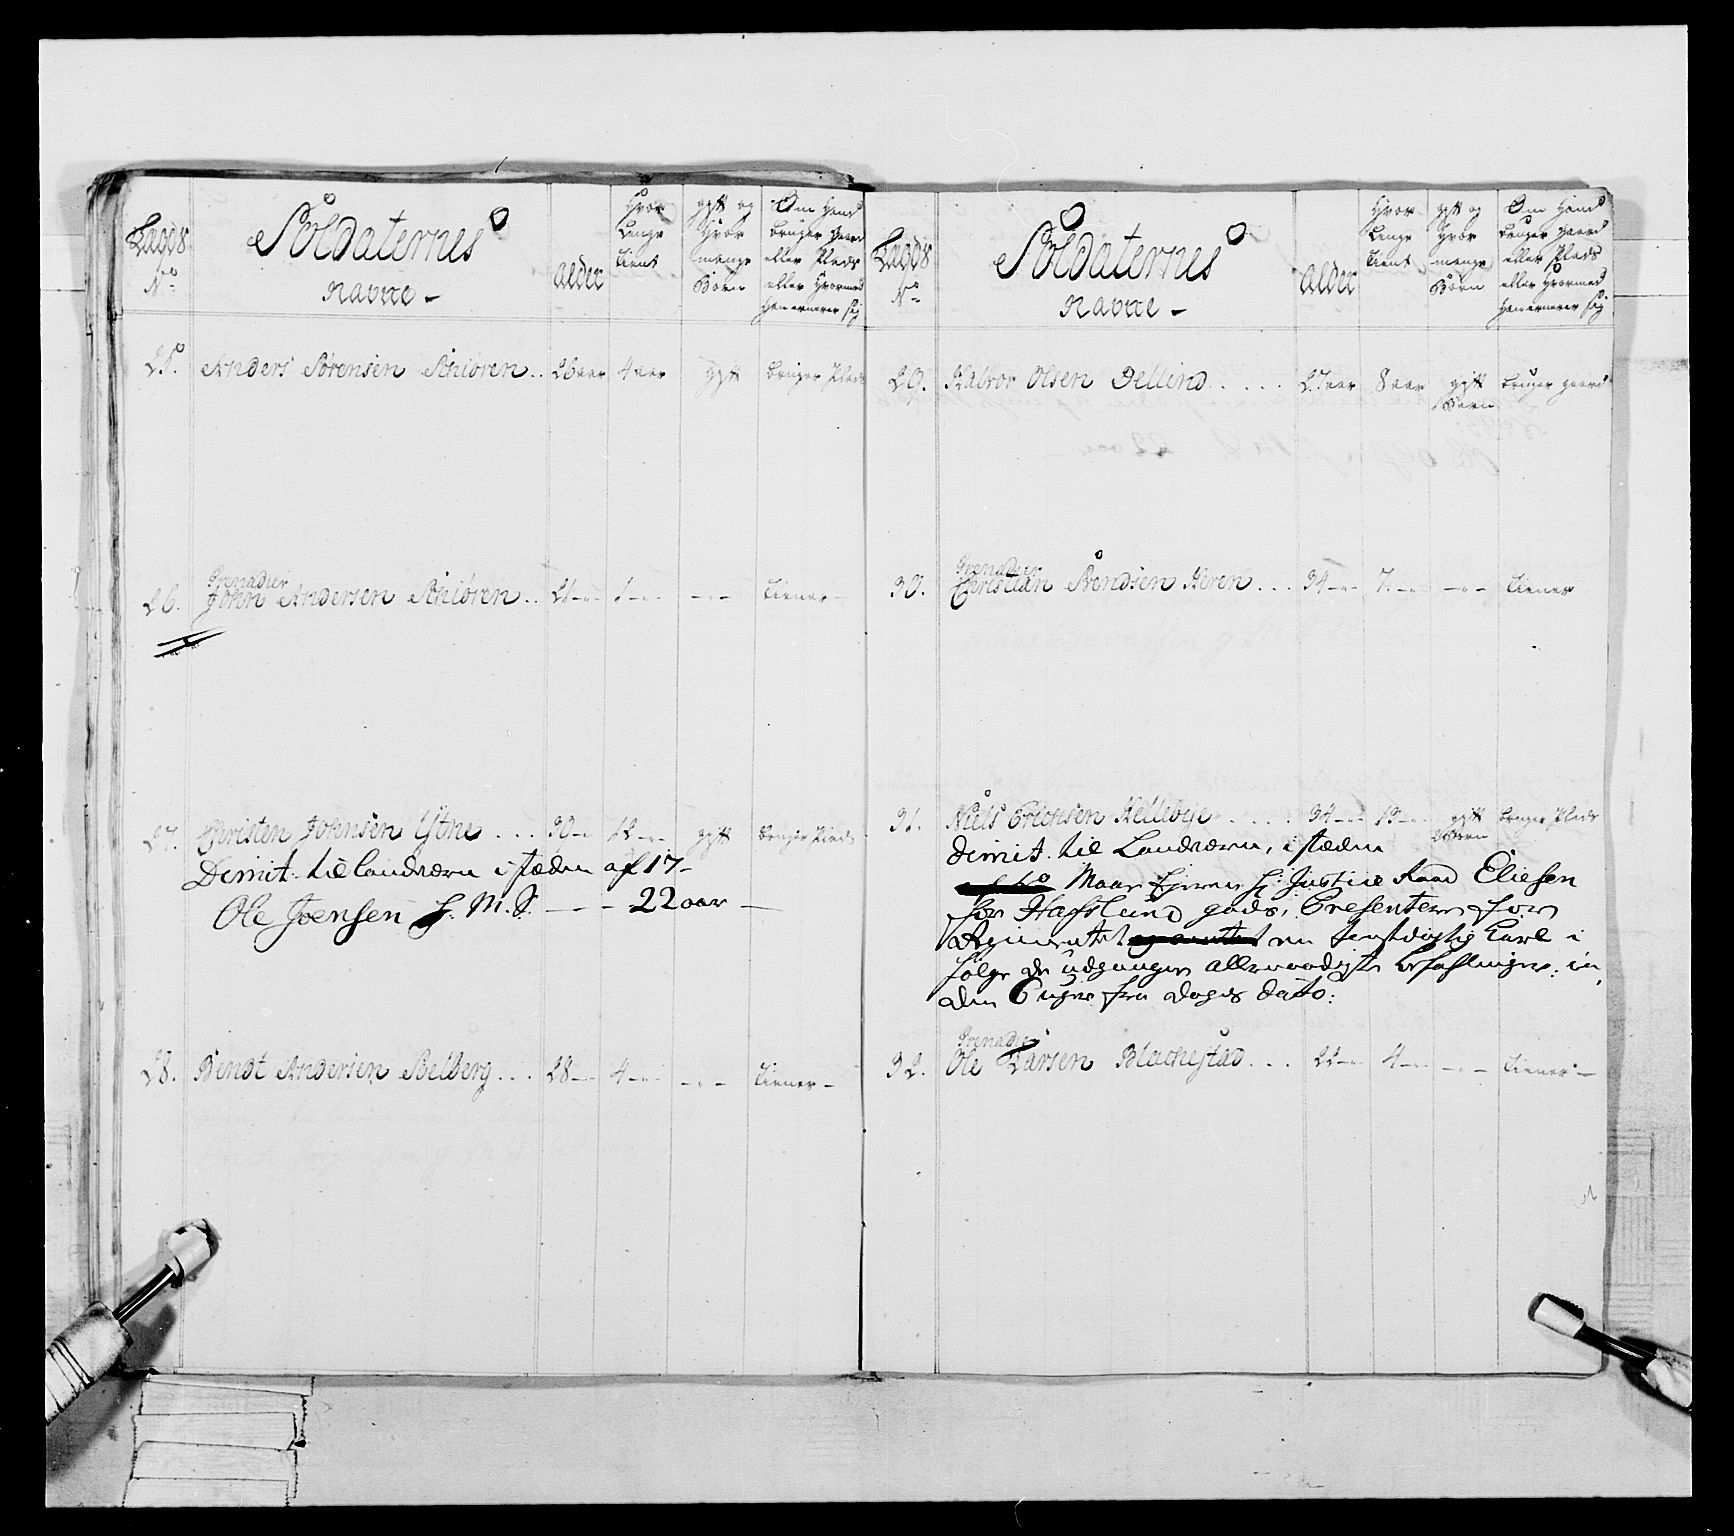 Lægds
No
Soldaternes
Navne -
alder
Hvor
Lenge
Tient
gift og
Hvor
mange
Børn
Om Hand
bruger gaard
eller Plads
eller Hvormed
Han ernærer sig
25. Anders Sørensen Skiøren.. 26 aar 4 aar gift bruger Plads
Grenadier
26. John Andersen Skiøren.. 21-"- 1-"- -"- Tiener -
27. Christen Johnsen Ystne.... 30-"- 12-"- gift bruger Plads
Dimit: til landværn i stæden af 17-
Ole Joensen S. M. S. --- 22 aar -
28. Bendt Andersen Belberg... 28-"- 4-"- -"- Tiener -
Lægds
No
Soldaternes
Navne -
alder
Hvor
Lenge
Tient
gift og
Hvor
mange
Børn
Om Hand
bruger gaard
eller Plads
eller Hvormed
Han ernærer sig
29. Halvor Olsen Dellind..... 27 aar 8 aar gift bruger gaard
Børn
Grenadier
30. Christian Svendsen Heren... 34-"- 7-"- -"- Tiener
31. Niels Erichsen Hellebye..... 34-"- 13-"- gift bruger Plads
Børn
Dimit. til Landværn, i stæden
Maae Ejeren Hr Justice Raad Eliesen
for Hafslund gods, Presentere for
Regimentet en tienstdygtig Karl i
følge de udgangne allernaadigste befahlinger: in,
den 6 uger fra dags dato:
Grenadier
32. Ole Larsen Blachestad... 22-"- 4-"- -"- Tiener -